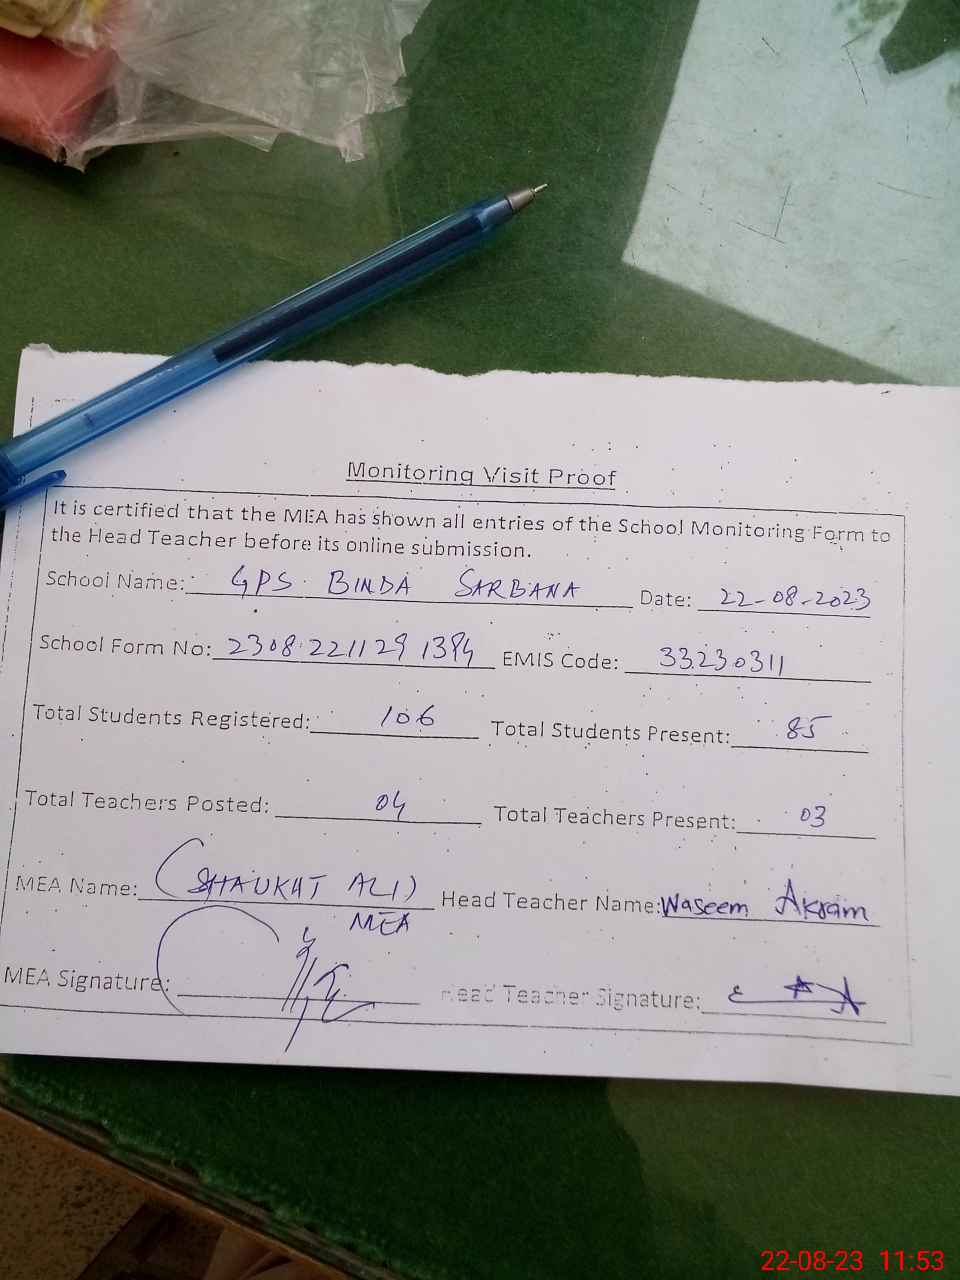 Monitoring Visit Proof
It is certified that the MEA has shown all entries of the School Monitoring Form to
the Head Teacher before its online submission.
School Name: GPS BINDA SARBANA Date: 22-08-2023
School Form No: 2308221129 1384 EMIS Code: 33230311
Total Students Registered: 106 Total Students Present: 85
Total Teachers Posted: 04 Total Teachers Present: 03
MEA Name: (SHAUKAT ALI) Head Teacher Name: Waseem Akram
MEA
MEA Signature: Head Teacher Signature:
22-08-23 11:53